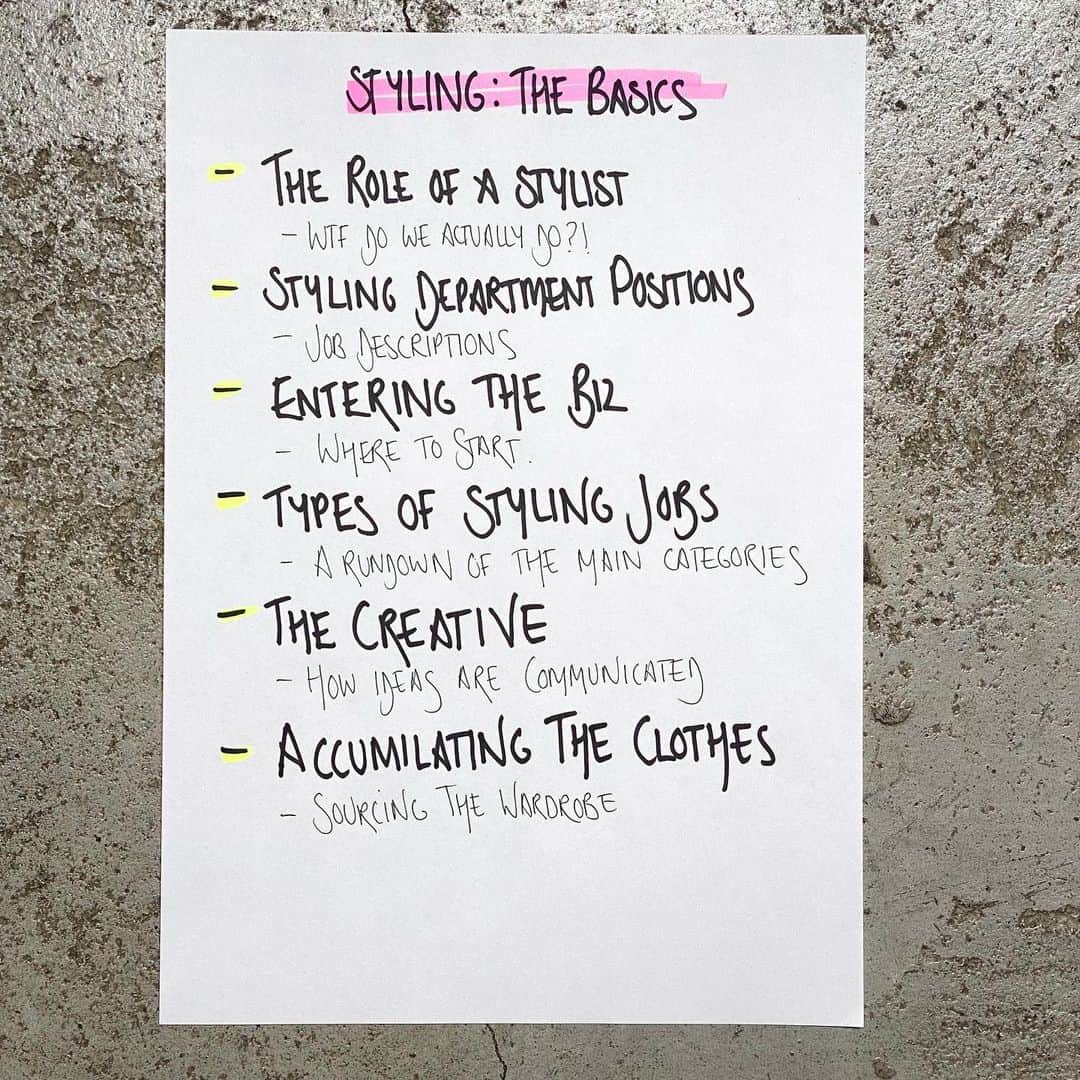 STYLING: THE BASICS
- THE ROLE OF A STYLIST
- WTF DO WE ACTUALLY DO?!
- STYLING DEPARTMENT POSITIONS
- JOB DESCRIPTIONS
- ENTERING THE BIZ
- WHERE TO START.
- TYPES OF STYLING JOBS
- A RUNDOWN OF THE MAIN CATEGORIES
- THE CREATIVE
- HOW IDEAS ARE COMMUNICATED
- ACCUMILATING THE CLOTHES
- SOURCING THE WARDROBE